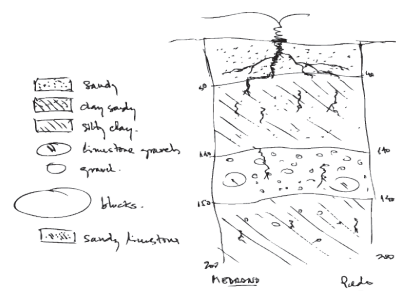 sandy
clay sandy
silty clay.
limestone gravels
gravel.
blocks.
sandy limestone
40
40
140
140
150
150
200
200
MEDRANO